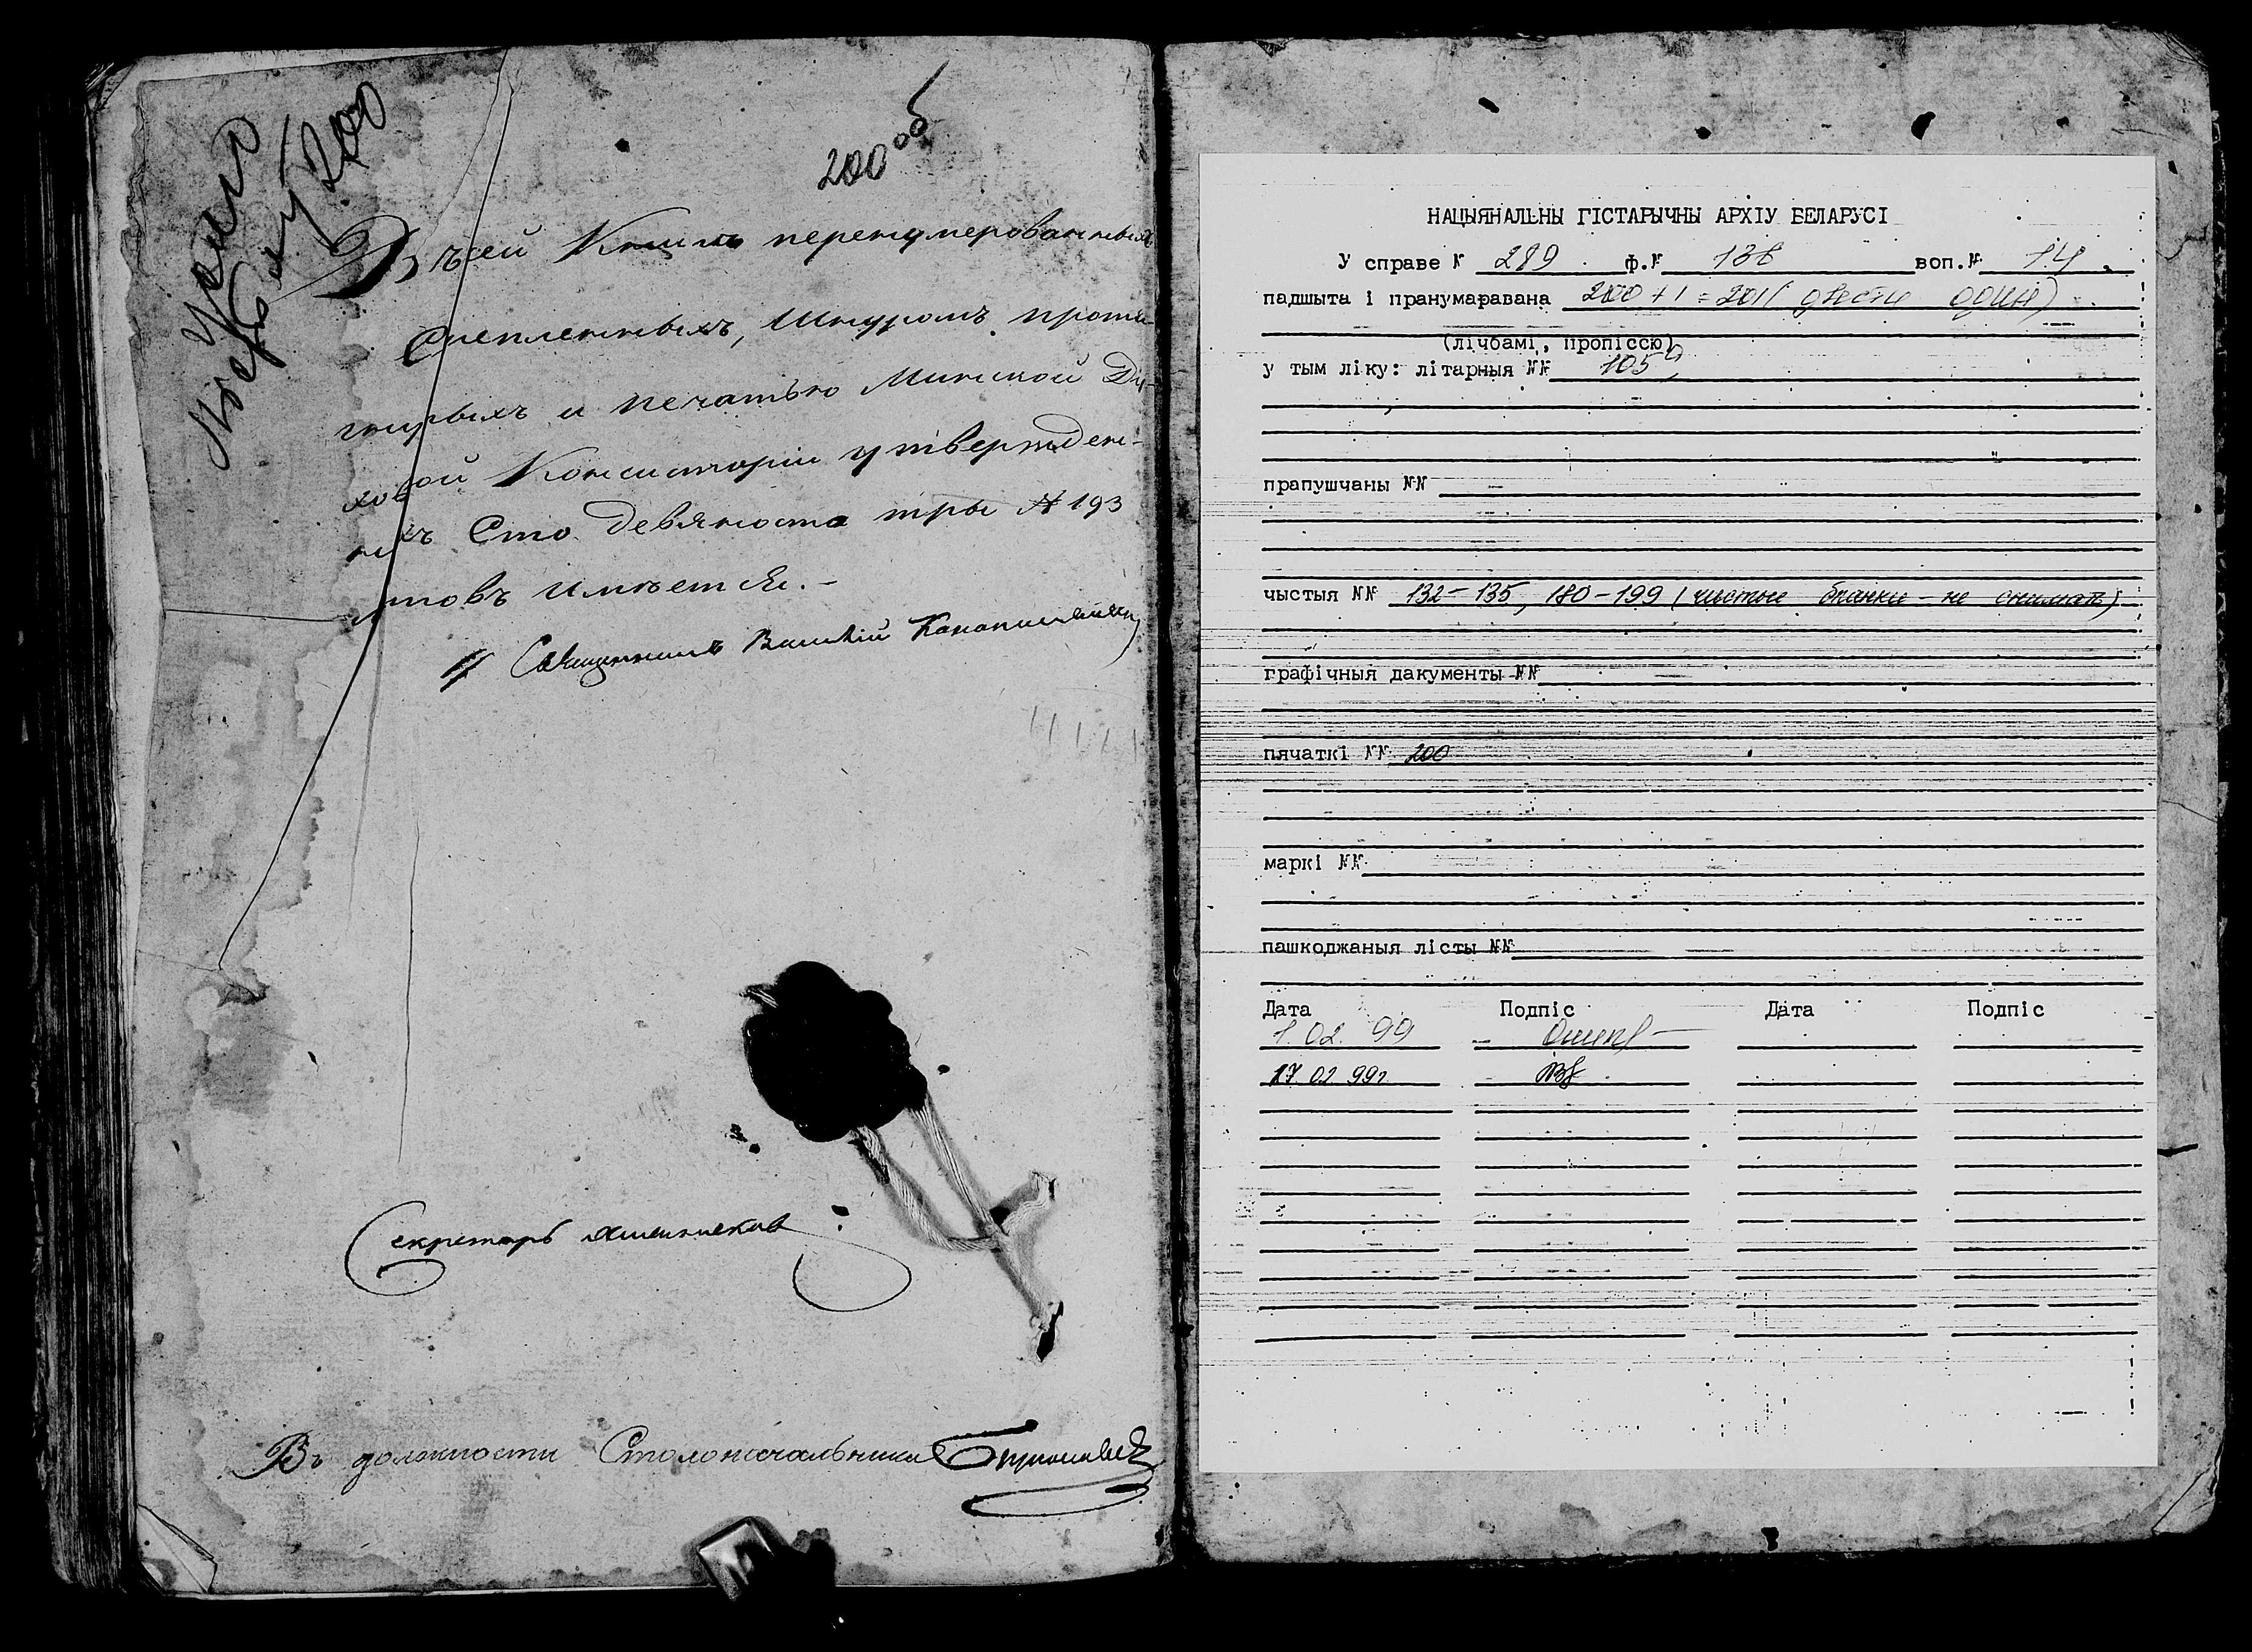 200 об
Въ сей Книгѣ перенумерованныхъ
Скрепленныхъ, Шнуромъ протя-
гнутыхъ и печатью Минской Ду-
ховой Консисторіи утвержден-
ныхъ Сто девяноста три № 193
листовъ имѣется.-
Священникъ Василій
Секретарь
Въ должности Столоначальника
НАЦЫЯНАЛЬНЫ ГІСТАРЫЧНЫ АРХІУ БЕЛАРУСІ
У справе № 289 ф.№ 136 воп.№ 14
падшыта і пранумаравана 200+1=201 (двести один)
(лічбамі, пропіссю)
у тым ліку: літарныя №№ 105а
прапушчаны №№ —
чыстыя №№ 132-135, 180-199 (чистые бланки - не снимать)
графічныя дакументы №№ —
пячаткі №№ 200
маркі №№
пашкоджаныя лісты №№ —
Дата Подпіс Дата Подпіс
1.02.99
17.02.99г.